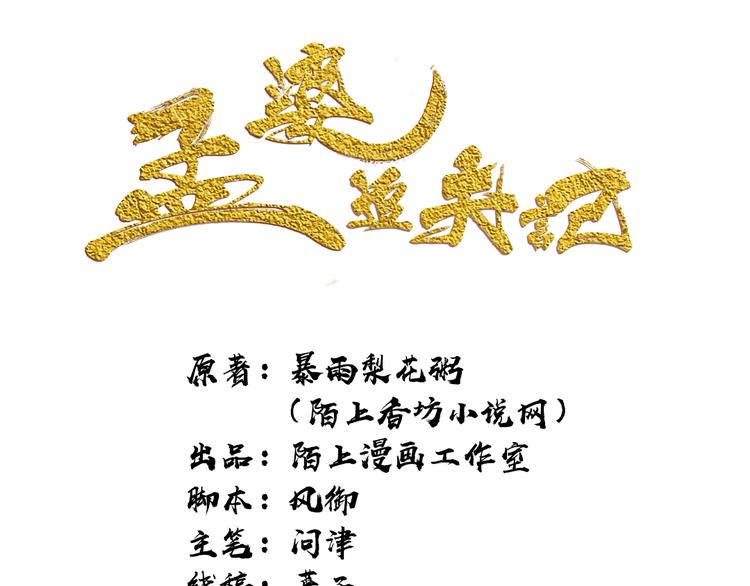 孟婆追夫记
原著：暴雨梨花粥
（陌上香坊小说网）
出品：陌上漫画工作室
脚本：风御
主笔：问津
线稿：燕子